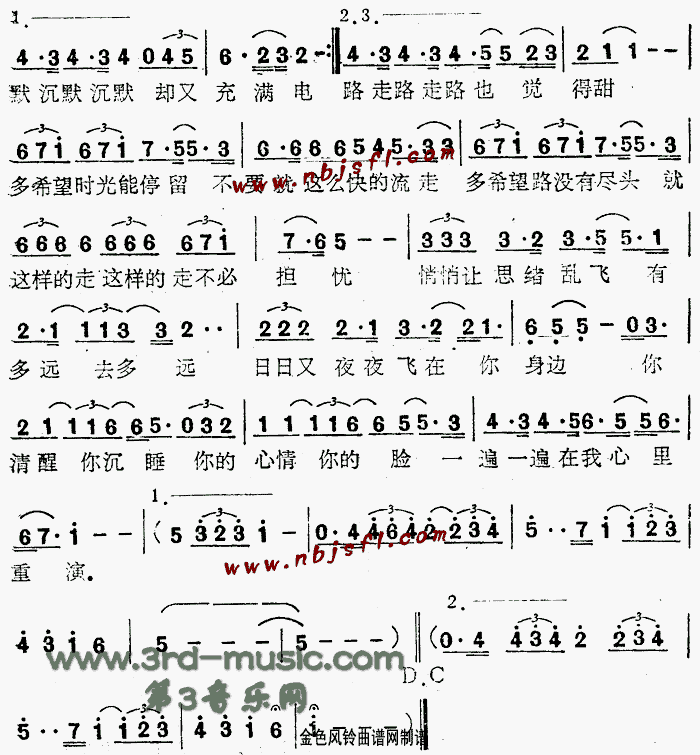 1. 2.3.
4·3 4·3 4·3 0 4 5 | 6·2 3 2 - :‖ 4·3 4·3 4·5 5 2 3 | 2 1 1 - -
默沉默沉默 却又 充 满 电 路走路走路也 觉 得甜
6 7 i 6 7 i 7·5 5·3 | 6·6 6 6 6 5 4 5·3 3 | 6 7 i 6 7 i 7·5 5·3
多希望时光能停留 不要就这么快的流走 多希望路没有尽头 就
www.nbjsfl.com
6 6 6 6 6 6 6 6 7 i | 7·6 5 - - | 3 3 3 3·2 3·5 5·1
这样的走这样的走不必 担 忧 悄悄让 思绪乱飞 有
2·1 1 1 3 3 2·· | 2 2 2 2·1 3·2 2 1· | 6 5 5 - 0 3·
多远 去多 远 日日又 夜夜飞在 你 身边 你
2 1 1 1 6 6 5· 0 3 2 | 1 1 1 1 6 6 5 5·3 | 4·3 4·5 6·5 5 6·
清醒 你沉 睡 你的 心情 你的 脸 一 遍一遍在我心里
1.
6 7· i - - | (5 3 2 3 i - | 0·4 4 6 4 2 2 3 4 | 5··7 i i 2 3
重 演。
www.nbjsfl.com
2.
4 3 i 6 | 5 - - - | 5 - - - ) ‖ (0·4 4 3 4 2 2 3 4
www.3rd-music.com
D.C
第3音乐网
5··7 i i 2 3 | 4 3 i 6 | i - - - ‖
金色风铃曲谱网制谱